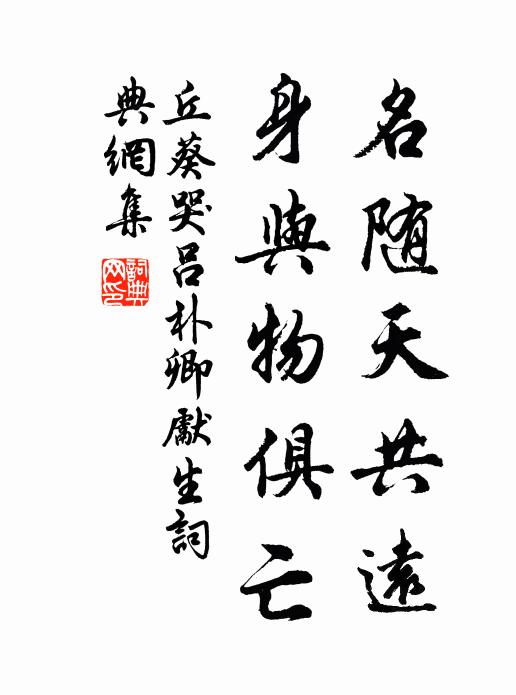 名随天共遠
身與物俱亡
丘葵哭吕朴卿獻生詞
典網集
詞典网印